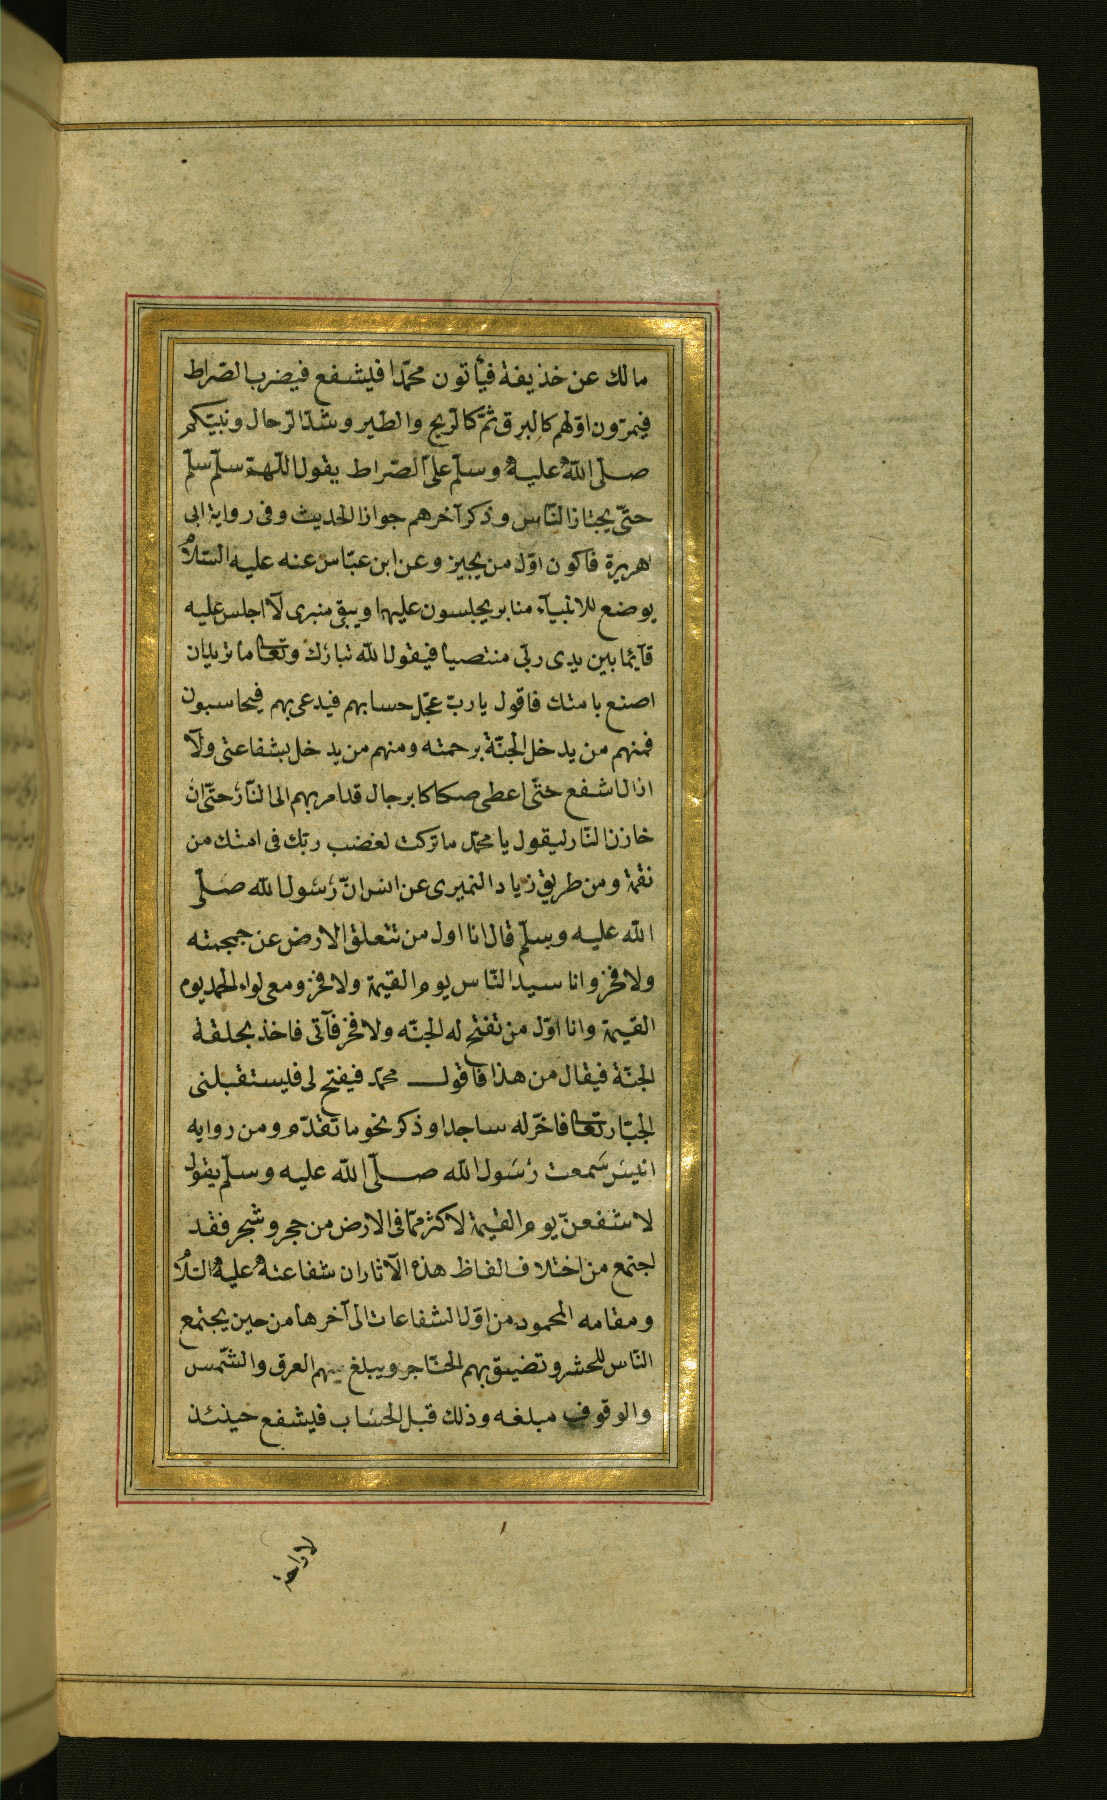 مالك عن حذيفة فيأتون محمّدا فيشفع فيضرب الصّراط
فيمرّون اوّلهم كالبرق ثمّ كالرّيح والطّير وشدّ الرّحال ونبيّكم
صلّى اللّه عليه وسلّم على الصّراط يقول اللّهمّ سلّم سلّم
حتّى يجتاز النّاس وذكر آخرهم جوازا الحديث وفى رواية ابى
هريرة فاكون اوّل من يجيز وعن ابن عبّاس عنه عليه السّلام
يوضع للانبيآء منابر يجلسون عليها ويبقى منبرى لآ اجلس عليه
قآئما بين يدى ربّى منتصبا فيقول اللّه تبارك وتعا ما تريد ان
اصنع بامتك فاقول يا ربّ عجّل حسابهم فيدعى بهم فيحاسبون
فمنهم من يدخل الجنّة برحمته ومنهم من يدخل بشفاعتى ولآ
ازال اشفع حتّى اعطى صكاكا برجال قد امر بهم الى النّار حتّى ان
خازن النّار ليقول يا محمّد ما تركت لغضب ربّك فى امتك من
نقمة ومن طريق زياد النميرى عن انس انّ رسول اللّه صلّى
اللّه عليه وسلّم قال انا اول من تنعلق الارض عن جمجمته
ولا فخر وانا سيد النّاس يوم القيمة ولا فخر ومعى لواء الحمد يوم
القيمة وانا اوّل من تفتح له الجنّه ولا فخر فآتى فاخذ بحلقة
الجنّة فيقال من هذا فاقول محمّد فيفتح لى فيستقبلنى
الجبّار تعا فاخرّ له ساجدا وذكر نحو ما تقدّم ومن روايه
انيس سمعت رسول اللّه صلّى اللّه عليه وسلّم يقول
لاشفعنّ يوم القيمة لاكثر ممّا فى الارض من حجر وشجر فقد
اجتمع من اختلاف الفاظ هذه الآثار ان شفاعته عليه السّلام
ومقامه المحمود من اوّل الشفاعات الى آخرها من حين يجتمع
النّاس للحشر وتضيق بهم الحناجر ويبلغ منهم العرق والشّمس
والوقوف مبلغه وذلك قبل الحساب فيشفع حينئذ
لاراحة